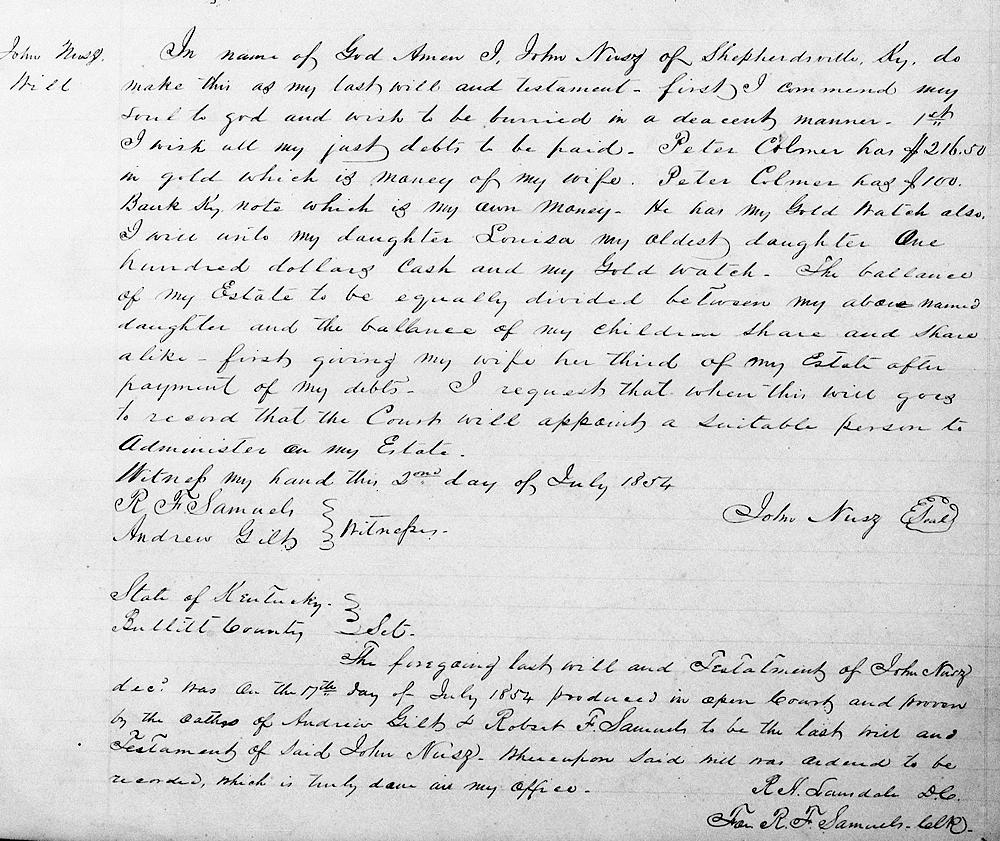 John Nusz.
Will
In name of God Amen I, John Nusz of Shepherdsville, Ky, do
make this as my last will and testament - first I commend my
soul to god and wish to be burried in a deacent manner. 1st
I wish all my just debts to be paid. Peter Colmer has $216.50
in gold which is money of my wife. Peter Colmer has $100.
Bank Ky note which is my own money - He has my Gold Watch also.
I will unto my daughter Louisa my oldest daughter One
hundred dollars Cash and my Gold watch - The ballance
of my Estate to be equally divided between my above named
daughter and the ballance of my children share and share
alike - first giving my wife her third of my Estate after
payment of my debts - I request that when this will goes
to record that the Court will appoint a suitable person to
Administer on my Estate.
Witness my hand this 2nd day of July 1854
R F Samuels
Andrew Gilt } Witnesses.
John Nusz (Seal)
State of Kentucky.
Bullitt County } Sct.
The foregoing last will and Testatment of John Nusz
decd. was on the 17th day of July 1854 produced in open Court and proven
by the oaths of Andrew Gilt & Robert F. Samuels to be the last will and
Testament of said John Nusz - Whereupon said will was ordered to be
recorded, which is truly done in my office.
R. H. Lansdale D.C.
For R. F. Samuels - ClK.